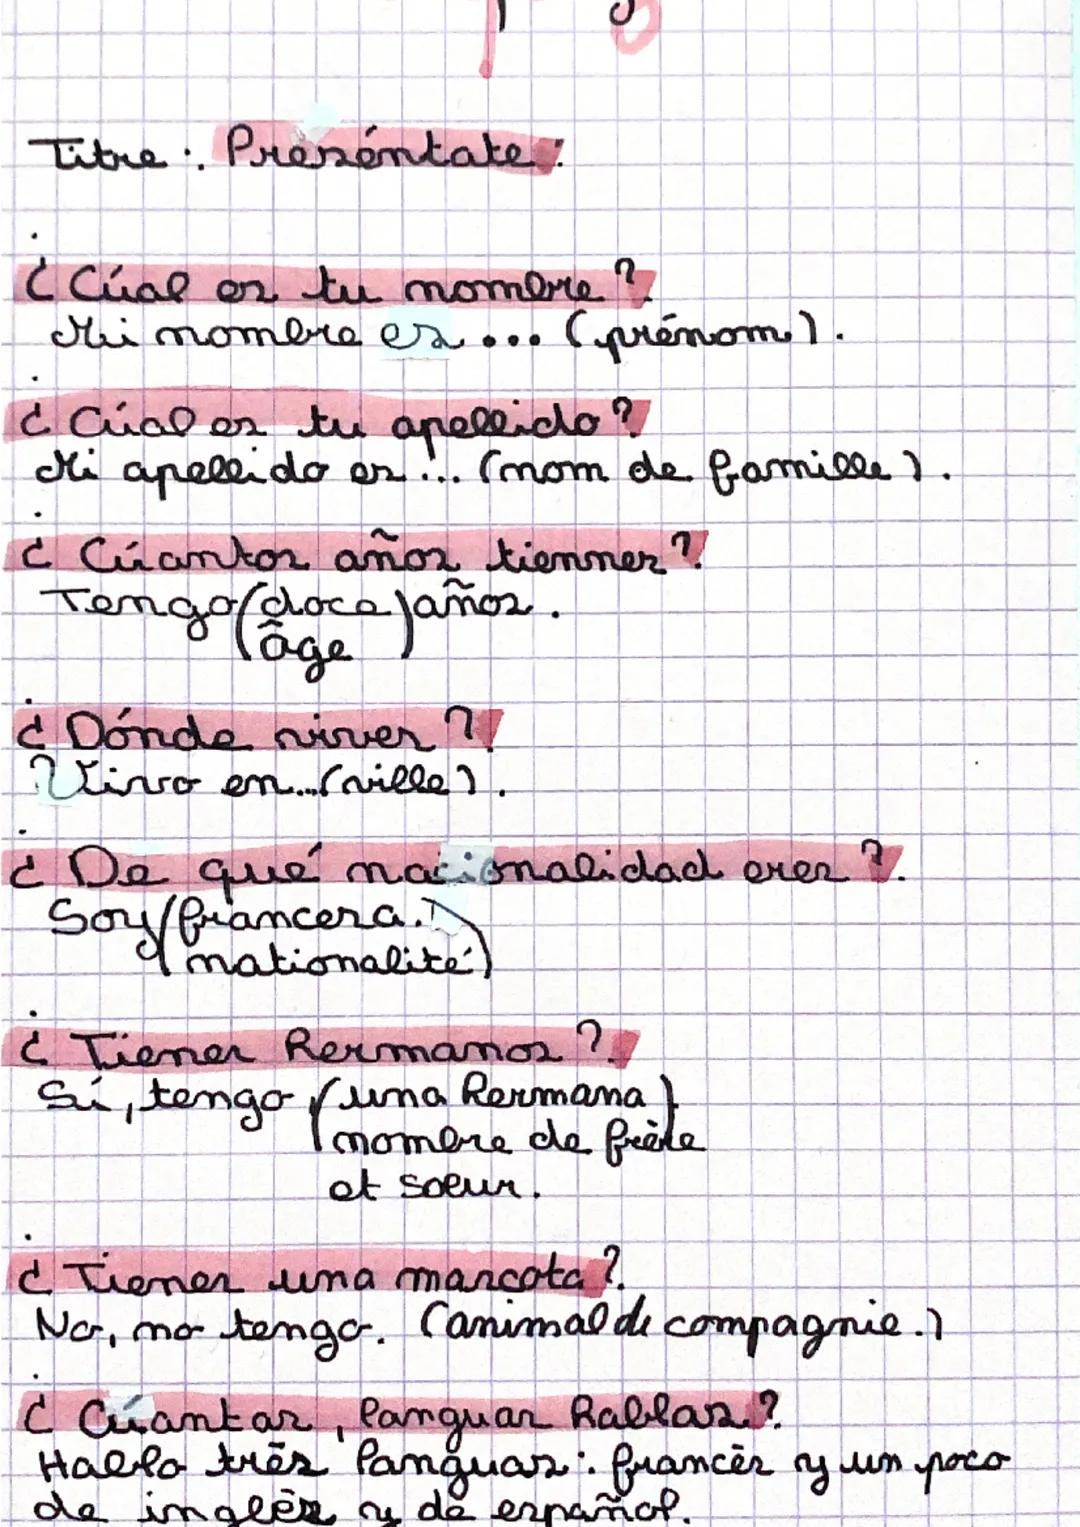 Titre : Preséntate :
¿ Cúal es tu nombre ?
Mi nombre es ... (prénom).
¿ Cúal es tu apellido ?
Mi apellido es ... (nom de famille).
¿ Cúantos años tiennes ?
Tengo (doce) años.
âge
¿ Dónde vives ?
Vivo en... (ville).
¿ De qué nacionalidad eres ?
Soy (francesa.
nationalité)
¿ Tienes hermanos ?
Sí, tengo (una hermana)
nombre de frère
et soeur.
¿ Tienes una mascota ?
No, no tengo. (animal de compagnie.)
¿ Cúantas, languas hablas ?
Hablo três languas : francès y un poco
de inglès y de español.